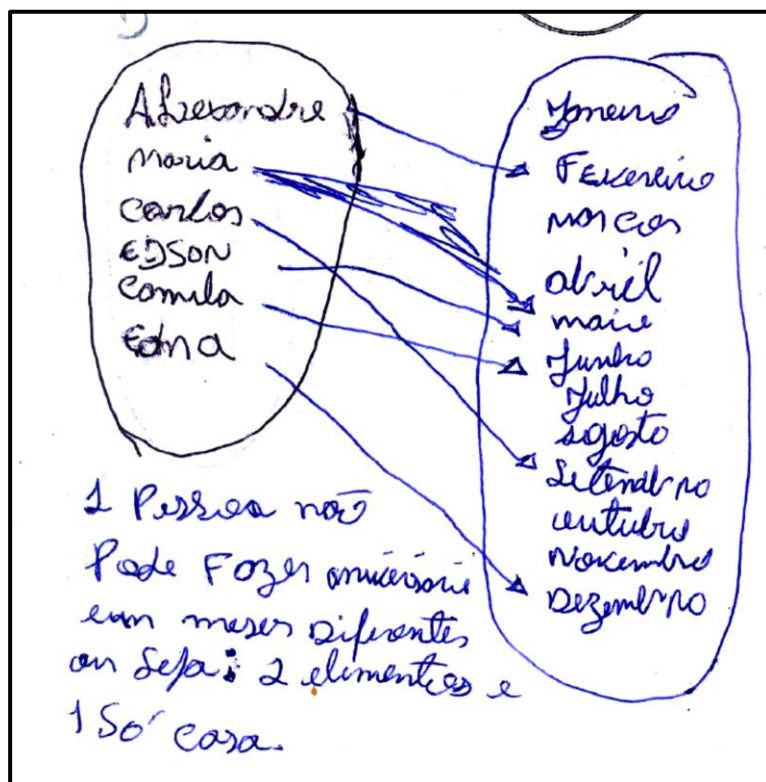 Alexandre
Maria
Carlos
EDSON
Camila
Edna
Janeiro
Fevereiro
Marços
abriel
maio
Junho
Julho
agosto
Setembro
outubro
Novembro
Dezembro
1 Pessoa não
Pode Fazer aniversário
em meses Diferentes
ou Seja: 2 elementos e
1 Só casa.